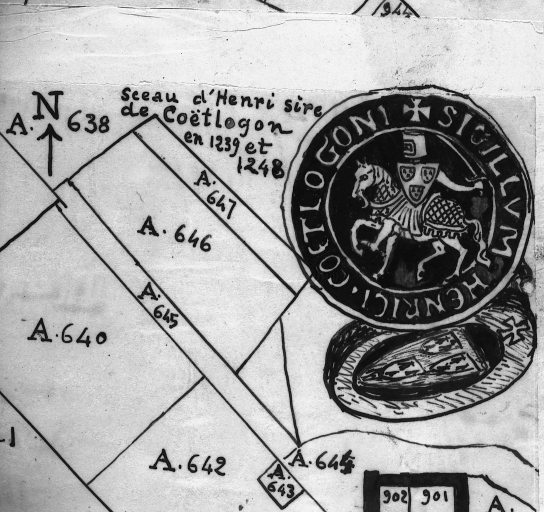 944
N
A. 638
Sceau d'Henri sire
de Coëtlogon
en 1239 et
1248
✠ SIGILLVM HENRICI · COETLOGONI
A. 647
A. 646
A. 645
A. 640
A. 642
A. 644
A. 643
902 901
A.